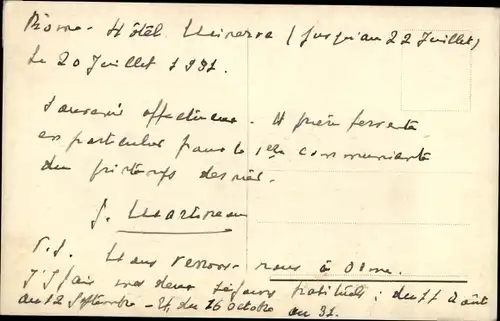 Rome - Hôtel Minerva (jusqu'au 22 Juillet)
Le 20 Juillet 1931.
Souvenir affectueux. et prière fervente
en particulier pour la 1ère communiante
du printemps dernier.
J. Martineau
P.S. à Orne.
J'y fais mes deux séjours habituels; du 11 Août
au 12 Septembre - et du 16 octobre au 31.